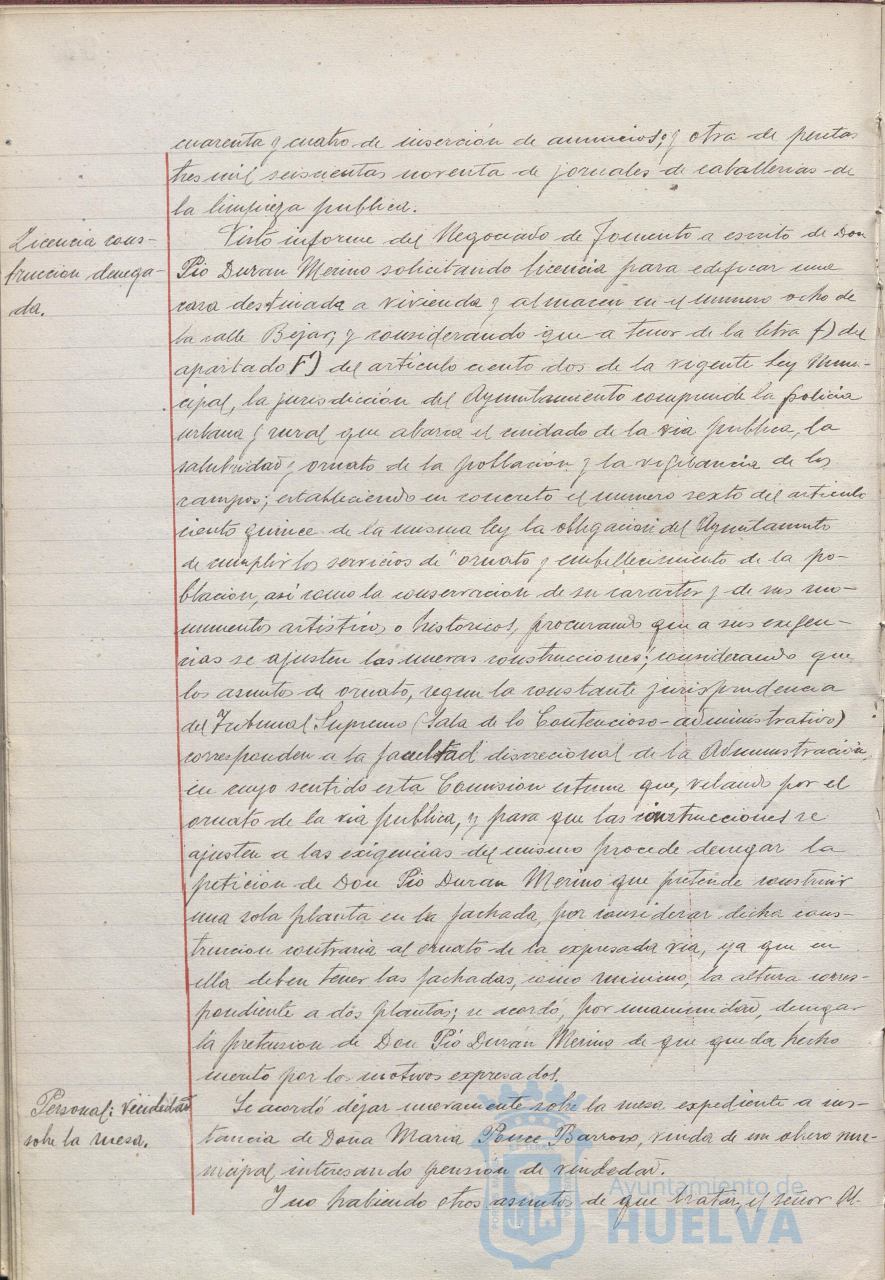 cuarenta y cuatro de inserción de anuncios; y otra de pesetas
tres mil seiscientas noventa de jornales de caballerias de
la limpieza publica.
Licencia cons-
truccion denega-
da.
Visto informe del Negociado de Fomento a escrito de Don
Pio Duran Merino solicitando licencia para edificar una
casa destinada a vivienda y almacen en el numero ocho de
la calle Bejar; y considerando que a tenor de la letra f) del
apartado F') del articulo ciento dos de la vigente Ley Muni-
cipal, la jurisdicción del Ayuntamiento comprende la policia
urbana y rural que abarca el cuidado de la via publica, la
salubridad y ornato de la población y la vigilancia de los
campos; estableciendo en concreto el numero sexto del articulo
ciento quince de la misma ley la obligación del Ayuntamiento
de cumplir los servicios de "ornato y embellecimiento de la po-
blacion, asi como la conservacion de su caracter y de sus mo-
numentos artisticos o historicos, procurando que a sus exigen-
cias se ajusten las nuevas construcciones; considerando que
los asuntos de ornato, segun la constante jurisprudencia
del Tribunal Supremo (Sala de lo Contencioso-administrativo)
corresponden a la facultad discrecional de la Administración,
en cuyo sentido esta Comision estima que, velando por el
ornato de la via publica, y para que las construcciones se
ajusten a las exigencias del mismo procede denegar la
petición de Don Pio Duran Merino que pretende construir
una sola planta en la fachada, por considerar dicha cons-
truccion contraria al ornato de la expresada via, ya que en
ella deben tener las fachadas, como minimo, la altura corres-
pondiente a dos plantas; se acordó, por unanimidad, denegar
la pretension de Don Pio Durán Merino de que queda hecho
merito por los motivos expresados.
Personal: viudedad
sobre la mesa.
Se acordó dejar nuevamente sobre la mesa expediente a ins-
tancia de Dona Maria Ponce Barroso, viuda de un obrero mu-
nicipal interesando pension de viudedad.
Y no habiendo otros asuntos de que tratar, el señor Al-
Ayuntamiento de
HUELVA